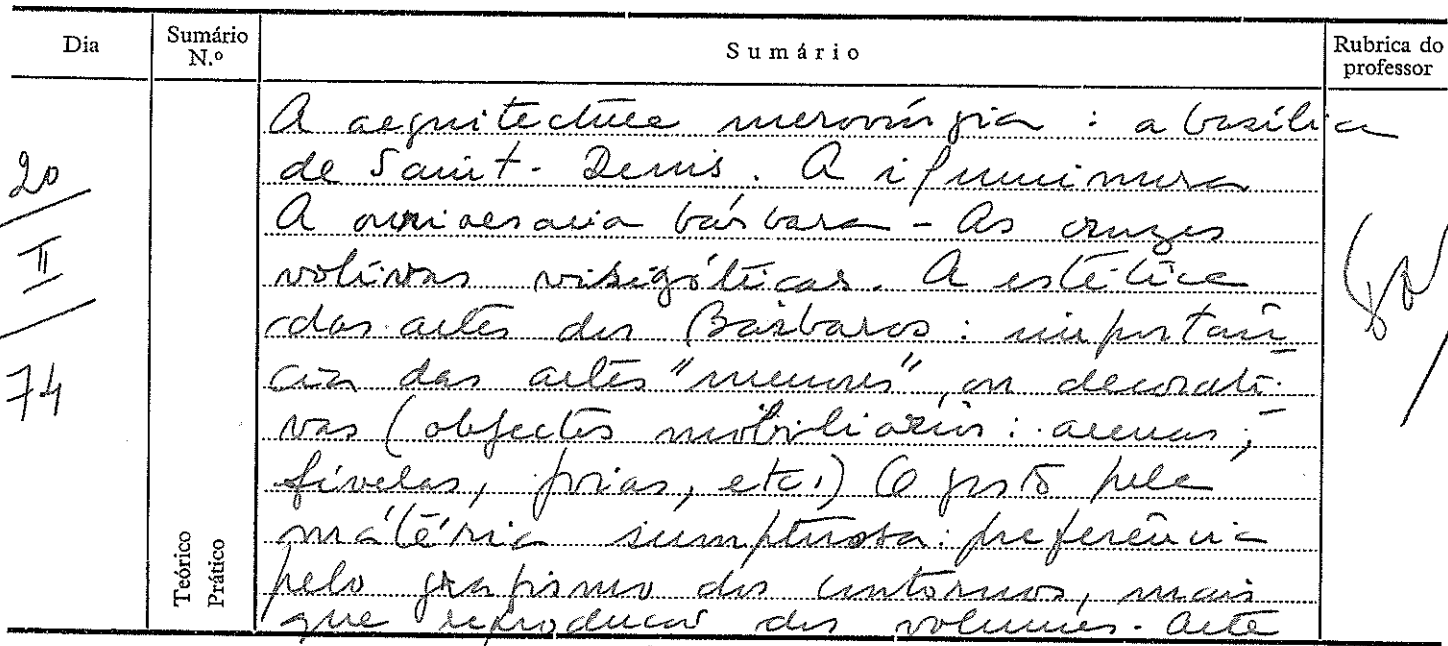 Dia Sumário N.º Sumário Rubrica do professor
20
II
74
A arquitectura merovíngia : a basílica
de Saint-Denis. A iluminura
A ourivesaria bárbara - As cruzes
votivas visigóticas. A estética
das artes dos Bárbaros: importân
cia das artes "menores" ou decorati-
vas (objectos mobiliários: armas,
fivelas, joias, etc.) O gosto pela
matéria sumptuosa: preferência
pelo grafismo dos contornos, mais
que reprodução dos volumes. Arte
Teórico
Prático